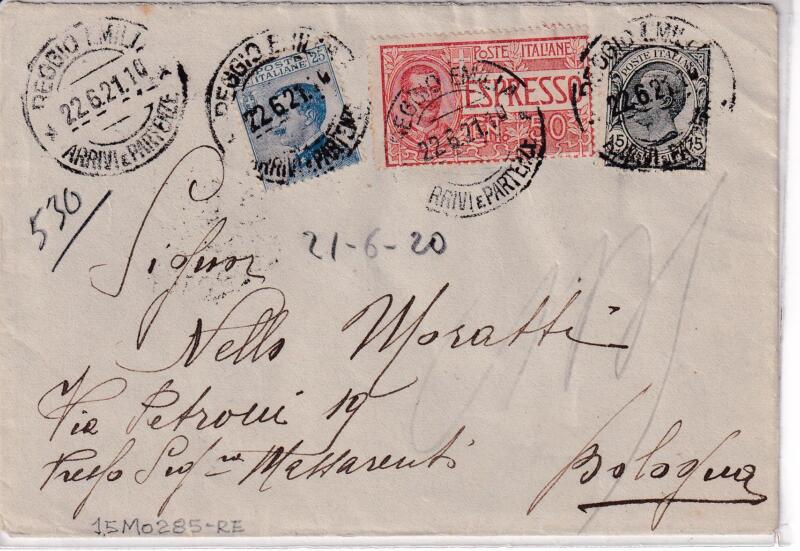 REGGIO EMILIA
22.6.21.16
ARRIVI E PARTENZE
REGGIO EMILIA
22.6.21.
ARRIVI E PARTENZE
POSTE ITALIANE 25
POSTE ITALIANE
ESPRESSO
50
REGGIO EMILIA
22.6.21.
ARRIVI E PARTENZE
POSTE ITALIANE
15 15
REGGIO EMILIA
22.6.21
530
21-6-20
Signor
Nello Moratti
Via Petroni 19
Presso Sig.ra Massarenti
Bologna
15M0285-RE